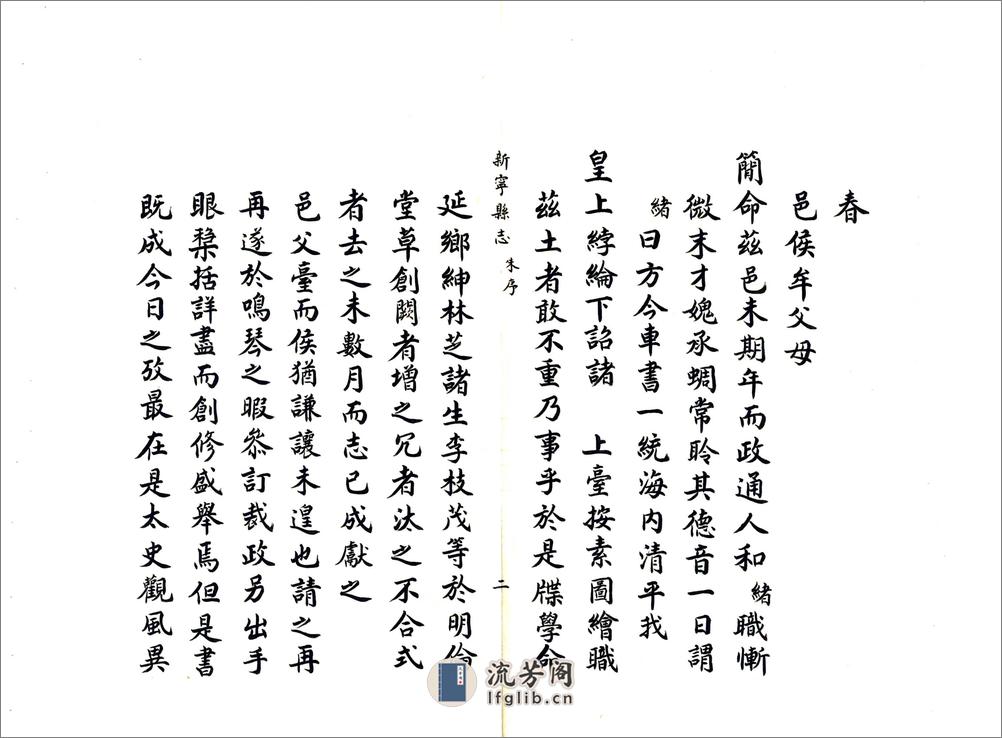 春
邑侯牟父母
簡命茲邑未期年而政通人和緒職慚
微末才媿承蜩常聆其德音一日謂
緒曰方今車書一統海内清平我
皇上綍綸下詔諸　上臺按素圖繪職
茲土者敢不重乃事乎於是牒學命
新寧縣志　朱序　二
延鄉紳林芝諸生李枝茂等於明倫
堂草創闕者增之冗者汰之不合式
者去之未數月而志已成獻之
邑父臺而侯猶謙讓未遑也請之再
再遂於鳴琴之暇叅訂裁政另出手
眼櫽括詳盡而創修盛舉焉但是書
既成今日之攷最在是太史觀風異
流芳阁
lfglib.cn